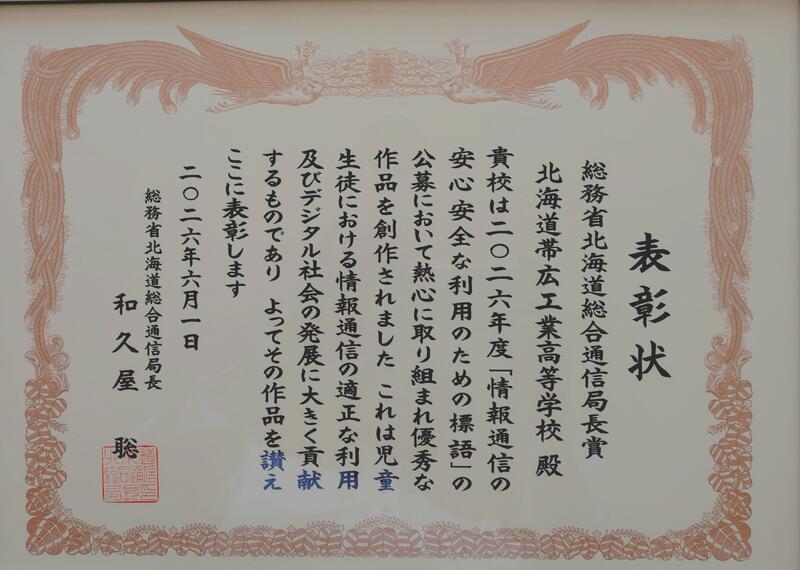 表彰状
総務省北海道総合通信局長賞
北海道帯広工業高等学校 殿
貴校は二〇二六年度「情報通信の
安心安全な利用のための標語」の
公募において熱心に取り組まれ優秀な
作品を創作されました これは児童
生徒における情報通信の適正な利用
及びデジタル社会の発展に大きく貢献
するものであり よってその作品を讃え
ここに表彰します
二〇二六年六月一日
総務省北海道総合通信局長
和久屋 聡